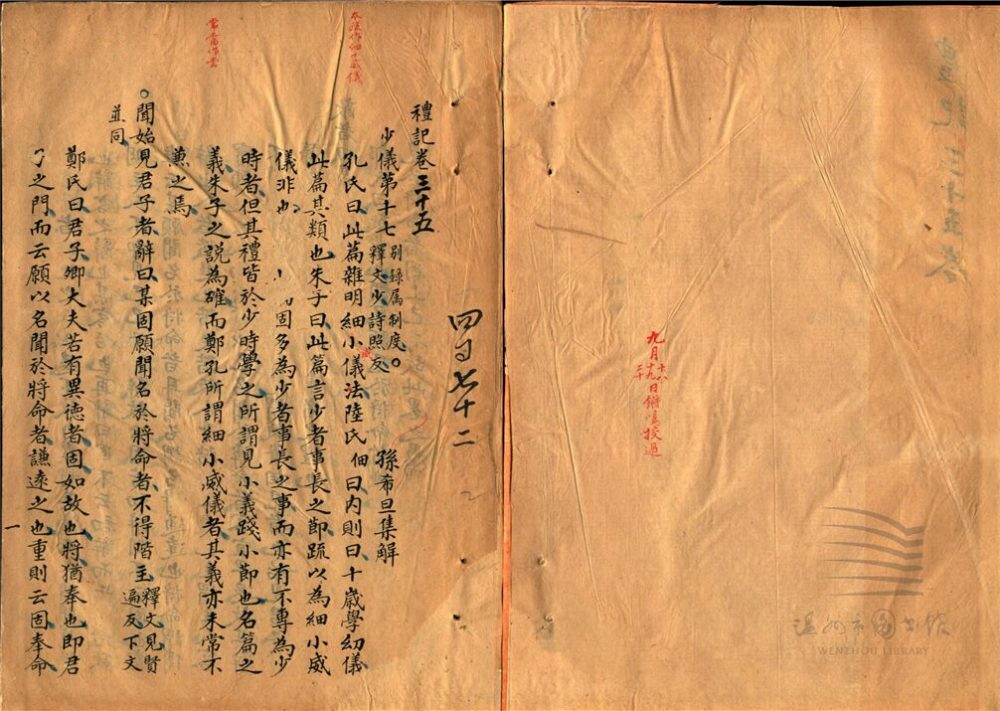 禮記卷三十五
少儀第十七 別錄屬制度。
釋文少詩照反
孫希旦集解
孔氏曰此篇雜明細小儀法陸氏佃曰內則曰十歲學幼儀
威
此篇其類也朱子曰此篇言少者事長之節疏以為細小威
儀非也 固多為少者事長之事而亦有不專為少
時者但其禮皆於少時學之所謂見小義踐小節也名篇之
義朱子之說為確而鄭孔所謂細小威儀者其義亦未常不
蕙之焉
。聞始見君子者辭曰某固願聞名於將命者不得階主 釋文見賢
遍反下文
並同
鄭氏曰君子卿大夫若有異德者固如故也將猶奉也即君
之門而云願以名聞於將命者謙遠之也重則云固奉命
一
四百七十二
常當作嘗
九月十八
十九日鏘鳴校過
二十
溫州市圖書館
WENZHOU LIBRARY